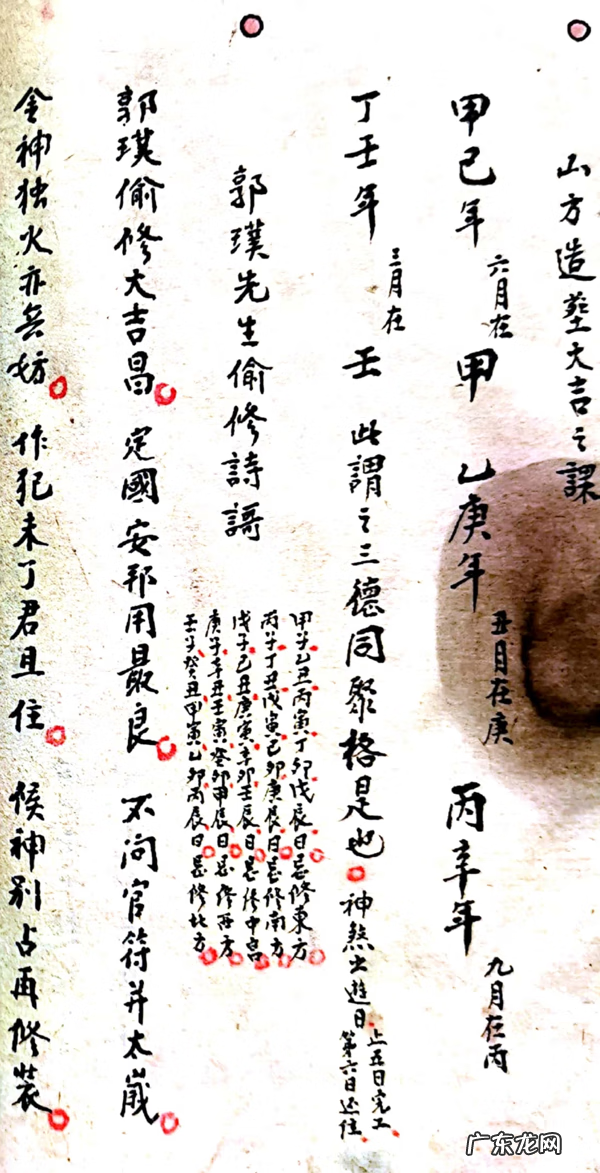 山方造塟大吉之課
甲己年 六月在 甲 乙庚年 丑月在庚 丙辛年 九月在丙
丁壬年 三月在 壬 此謂之三德同聚格是也 神煞出遊日 上五日完工
第六日还位
郭璞先生偷修詩謌
甲子乙丑丙寅丁卯戊辰日忌修東方
丙子丁丑戊寅己卯庚辰日忌修南方
戊子己丑庚寅辛卯壬辰日忌修中宮
庚子辛丑壬寅癸卯甲辰日忌修西方
壬子癸丑甲寅乙卯丙辰日忌修北方
郭璞偷修大吉昌 定國安邦用最良 不问官符并太歲
金神独火亦无妨 作犯未了君且住 候神别占再修裝
广东龙网